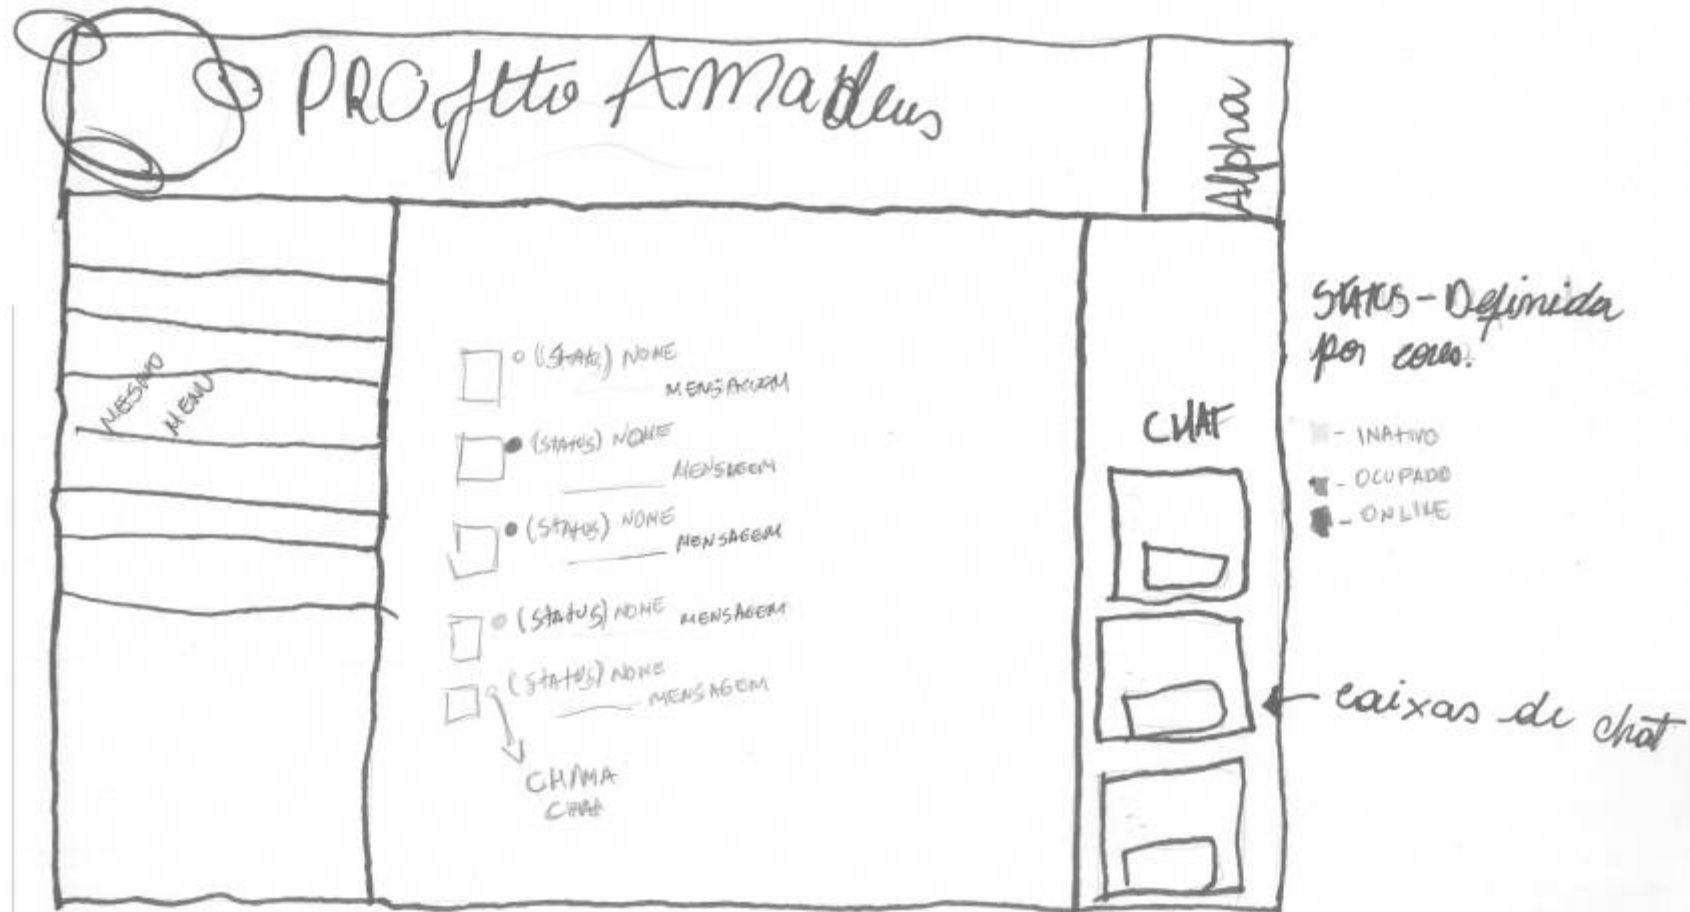 PROjeto Amadeus
Alpha
MESMO
MENU
(STATUS) NOME
MENSAGEM
(STATUS) NOME
MENSAGEM
(STATUS) NOME
MENSAGEM
(STATUS) NOME MENSAGEM
(STATUS) NOME
MENSAGEM
CHAMA
CHAT
CHAT
STATUS - Definida
por cores.
- INATIVO
- OCUPADO
- ONLINE
caixas de chat